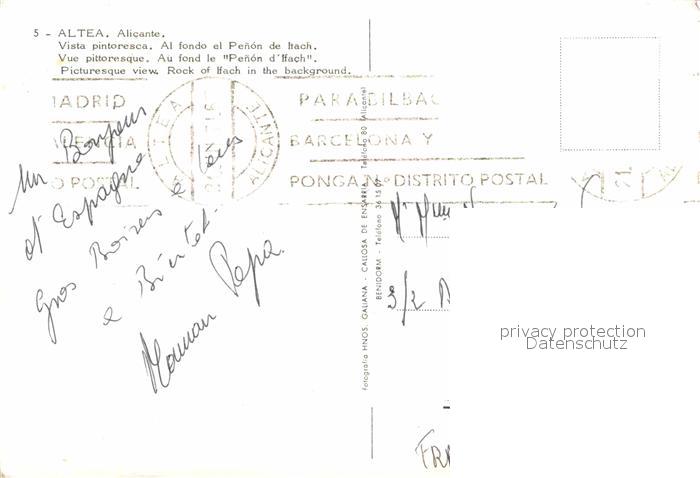 5 - ALTEA. Alicante.
Vista pintoresca. Al fondo el Peñón de Ifach.
Vue pittoresque. Au fond le "Peñón d'Ifach".
Picturesque view. Rock of Ifach in the background.
MADRID
VALENCIA
O POSTAL
ALTEA
ALICANTE
PARA BILBAO
BARCELONA Y
PONGA Nº DISTRITO POSTAL
Un Bonjour
d'Espagne
Gros Baisers a tous
a Bientot.
Maman Papa
Fotografía HNOS. GALIANA - CALLOSA DE ENSARRIA - Teléfono 80 (Alicante)
BENIDORM - Teléfono
3/2
privacy protection
Datenschutz